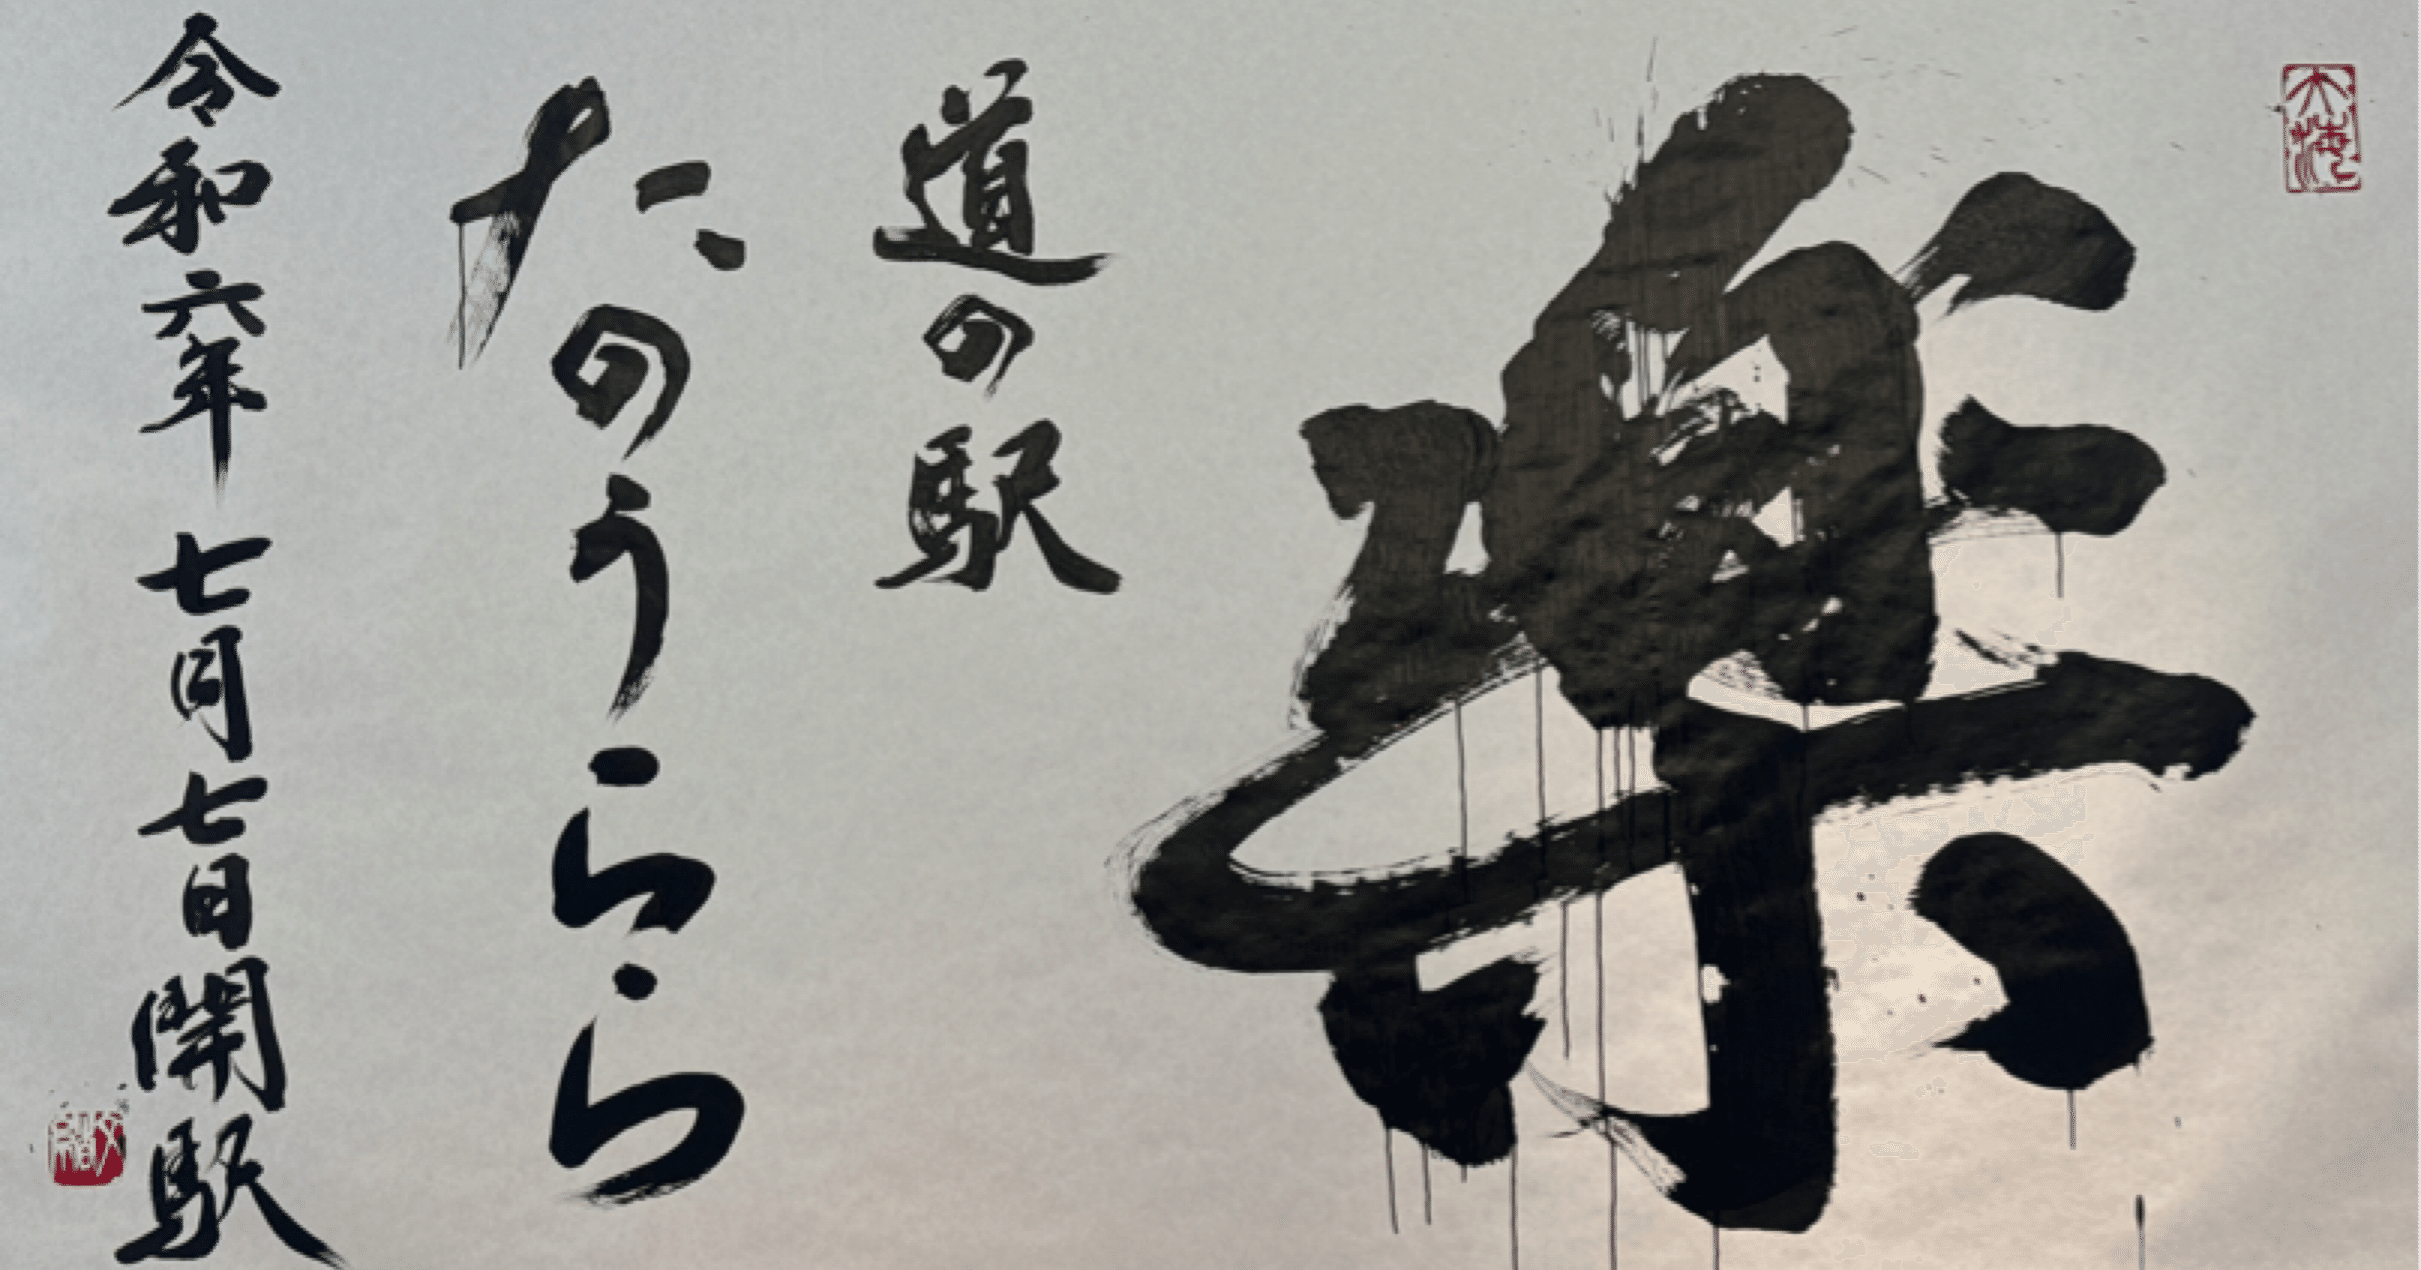 楽
道の駅
たのうらら
令和六年 七月七日開駅